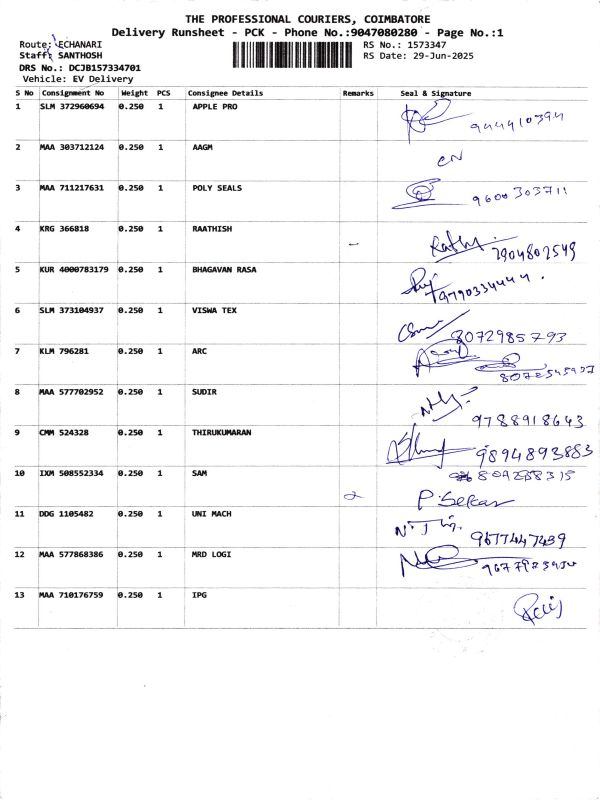 THE PROFESSIONAL COURIERS, COIMBATORE
Delivery Runsheet - PCK - Phone No.:9047080280 - Page No.:1
Route: ECHANARI
RS No.: 1573347
Staff: SANTHOSH
RS Date: 29-Jun-2025
DRS No.: DCJB157334701
Vehicle: EV Delivery
S No Consignment No Weight PCS Consignee Details Remarks Seal & Signature
1 SLM 372960694 0.250 1 APPLE PRO 9444910394
2 MAA 303712124 0.250 1 AAGM CN
3 MAA 711217631 0.250 1 POLY SEALS 9600303711
4 KRG 366818 0.250 1 RAATHISH - 7904802549
5 KUR 4000783179 0.250 1 BHAGAVAN RASA 9790334444.
6 SLM 373104937 0.250 1 VISWA TEX 8072985793
7 KLM 796281 0.250 1 ARC
8 MAA 577702952 0.250 1 SUDIR 9788918643
9 CMM 524328 0.250 1 THIRUKUMARAN 9894893883
10 IXM 508552334 0.250 1 SAM P. Sekar
11 DDG 1105482 0.250 1 UNI MACH 9677447439
12 MAA 577868386 0.250 1 MRD LOGI
13 MAA 710176759 0.250 1 IPG